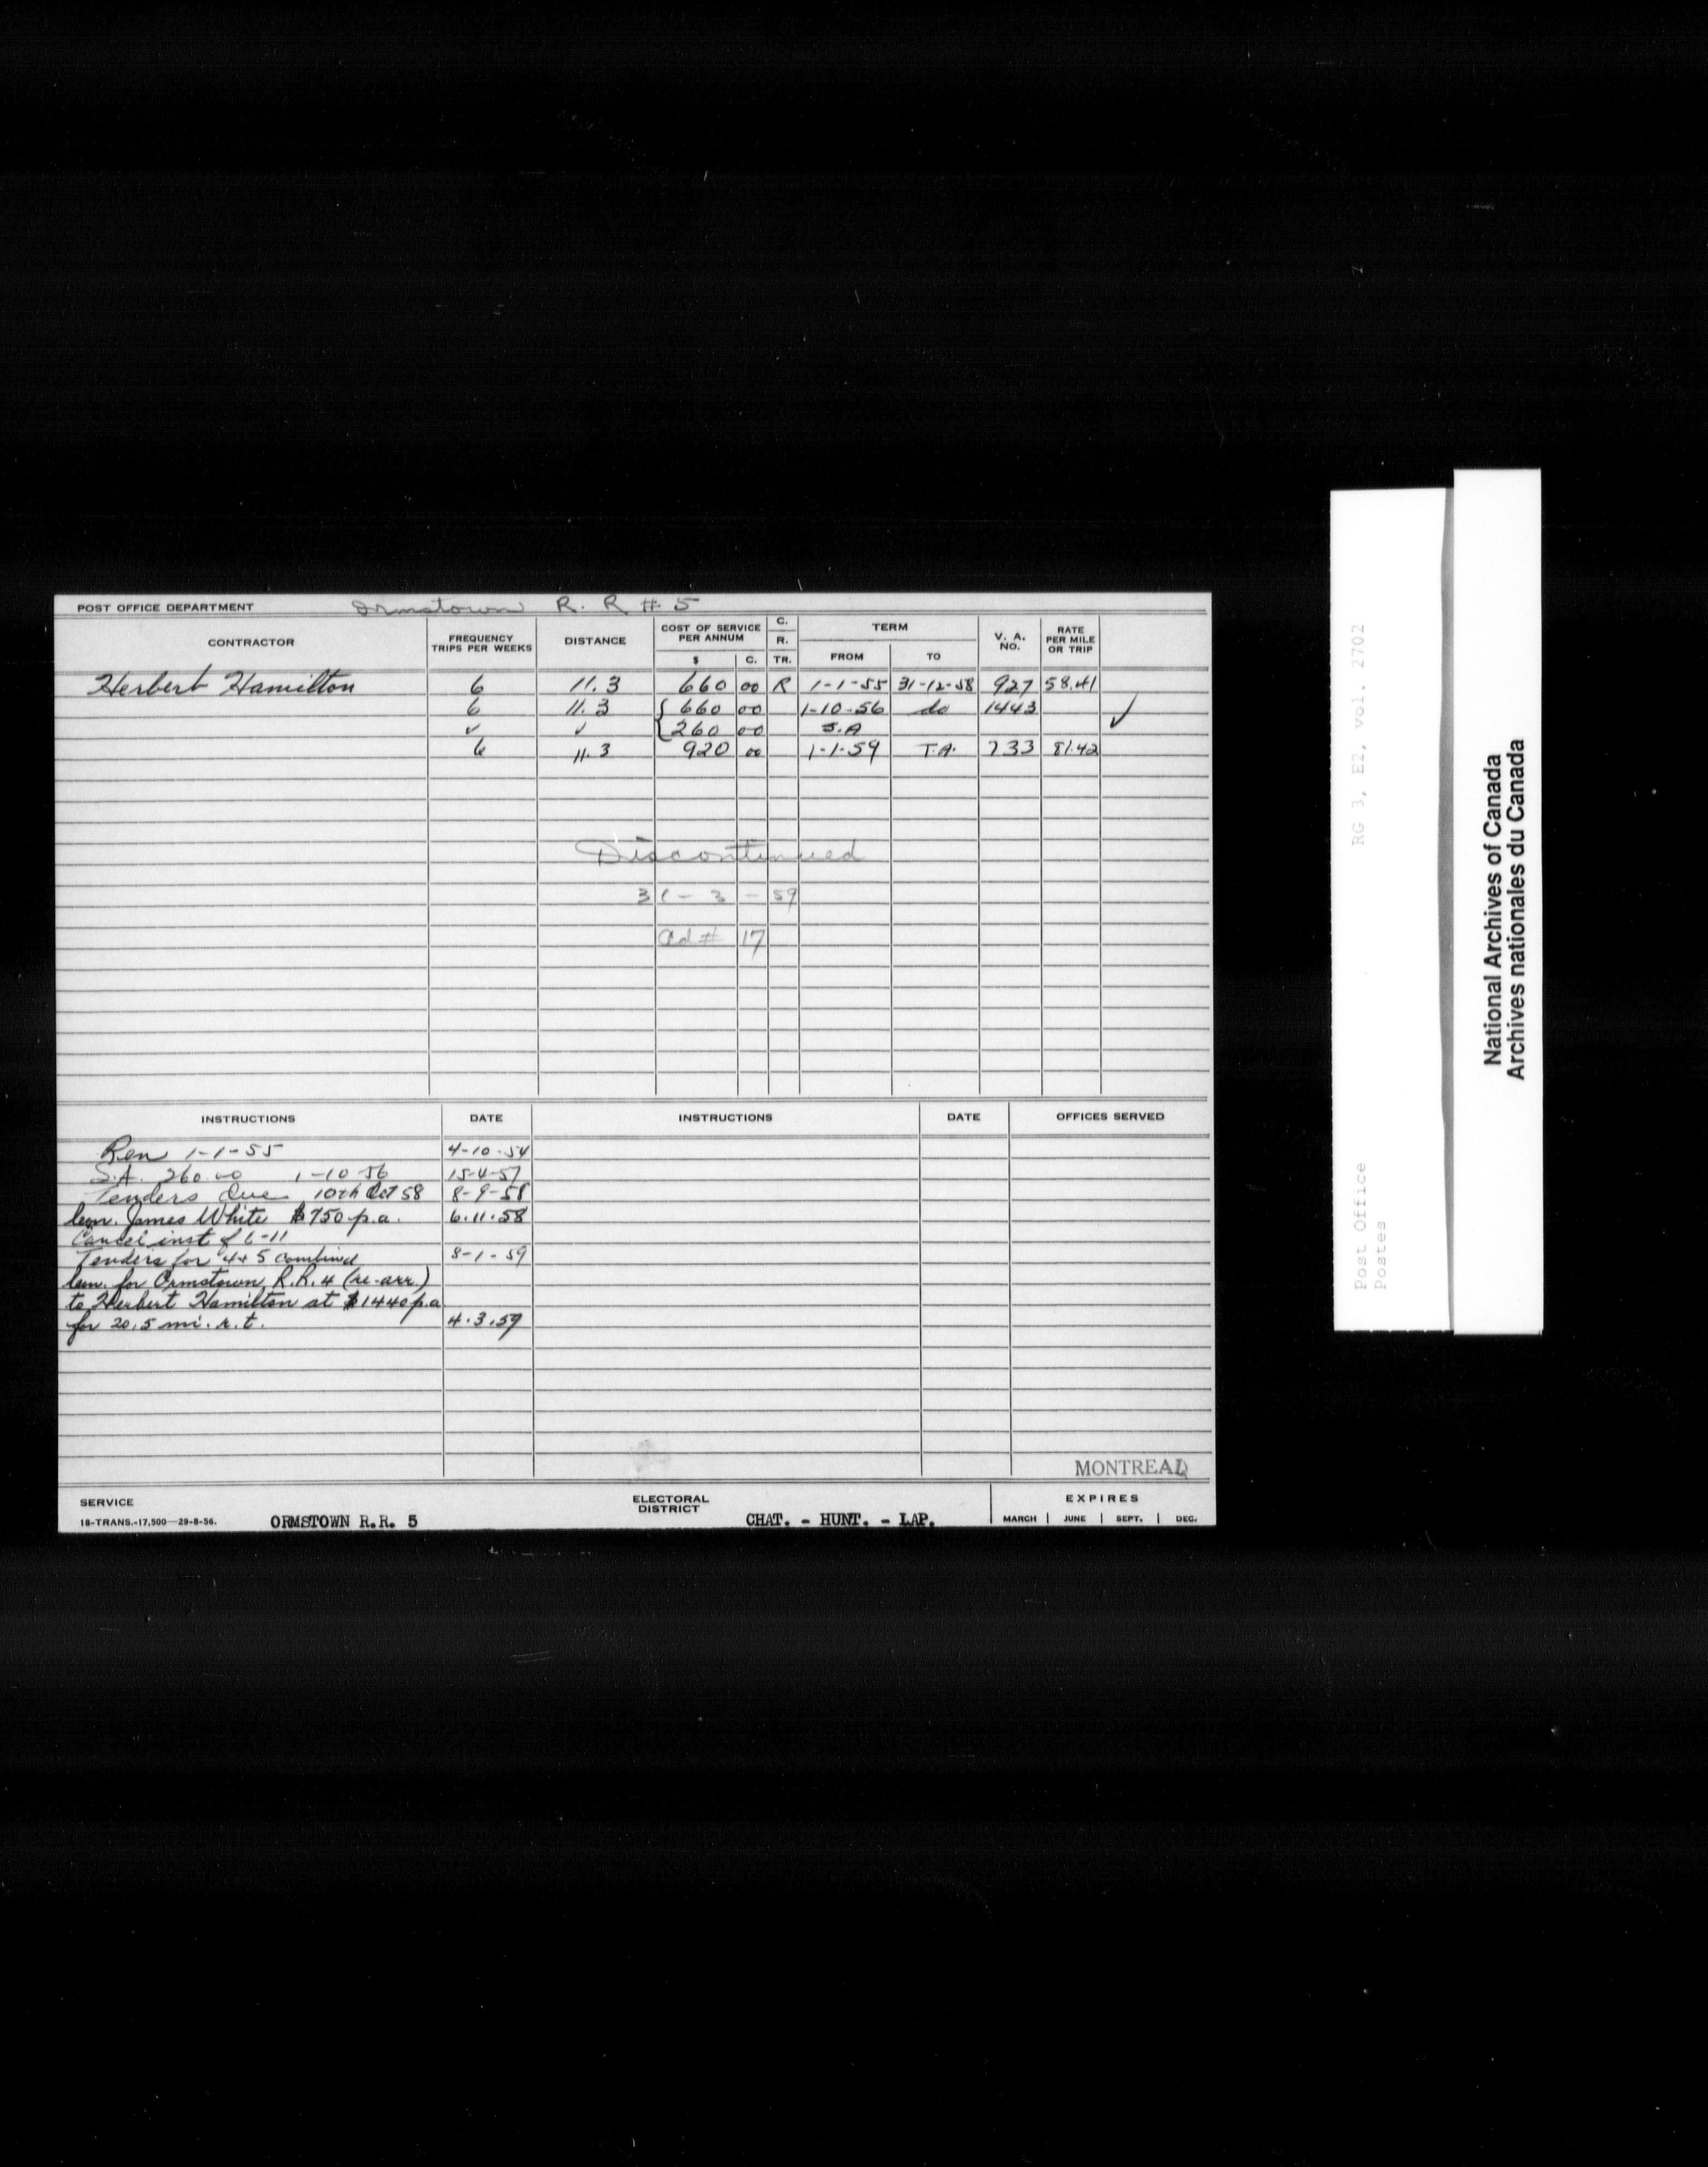 POST OFFICE DEPARTMENT Ormstown R. R # 5
CONTRACTOR FREQUENCY TRIPS PER WEEKS DISTANCE COST OF SERVICE PER ANNUM $ C. C. R. TR. TERM FROM TO V. A. NO. RATE PER MILE OR TRIP
Herbert Hamilton 6 11.3 660 00 R 1-1-55 31-12-58 927 58.41
6 11.3 660 00 1-10-56 do 1443 ✓
✓ ✓ 260 00 S.A
6 11.3 920 00 1-1-59 T.A. 733 81.42
Discontinued
31-3-59
Ad # 17
INSTRUCTIONS DATE INSTRUCTIONS DATE OFFICES SERVED
Ren 1-1-55 4-10-54
S.A. 260.00 1-10 56 15-4-57
Tenders Due 10th Oct 58 8-9-58
James White $750 p.a. 6.11.58
Cancel inst of 6-11
Tenders for 4+5 combined 8-1-59
for Ormstown R.R. 4 (re-arr.)
to Herbert Hamilton at $1440 p.a
for 20.5 mi. r.t. 4.3.59
MONTREAL
SERVICE ELECTORAL DISTRICT EXPIRES
18-TRANS.-17,500—29-8-56. ORMSTOWN R.R. 5 CHAT. - HUNT. - LAP. MARCH | JUNE | SEPT. | DEC.
RG 3, E2, vol. 2702
Post Office
Postes
National Archives of Canada
Archives nationales du Canada